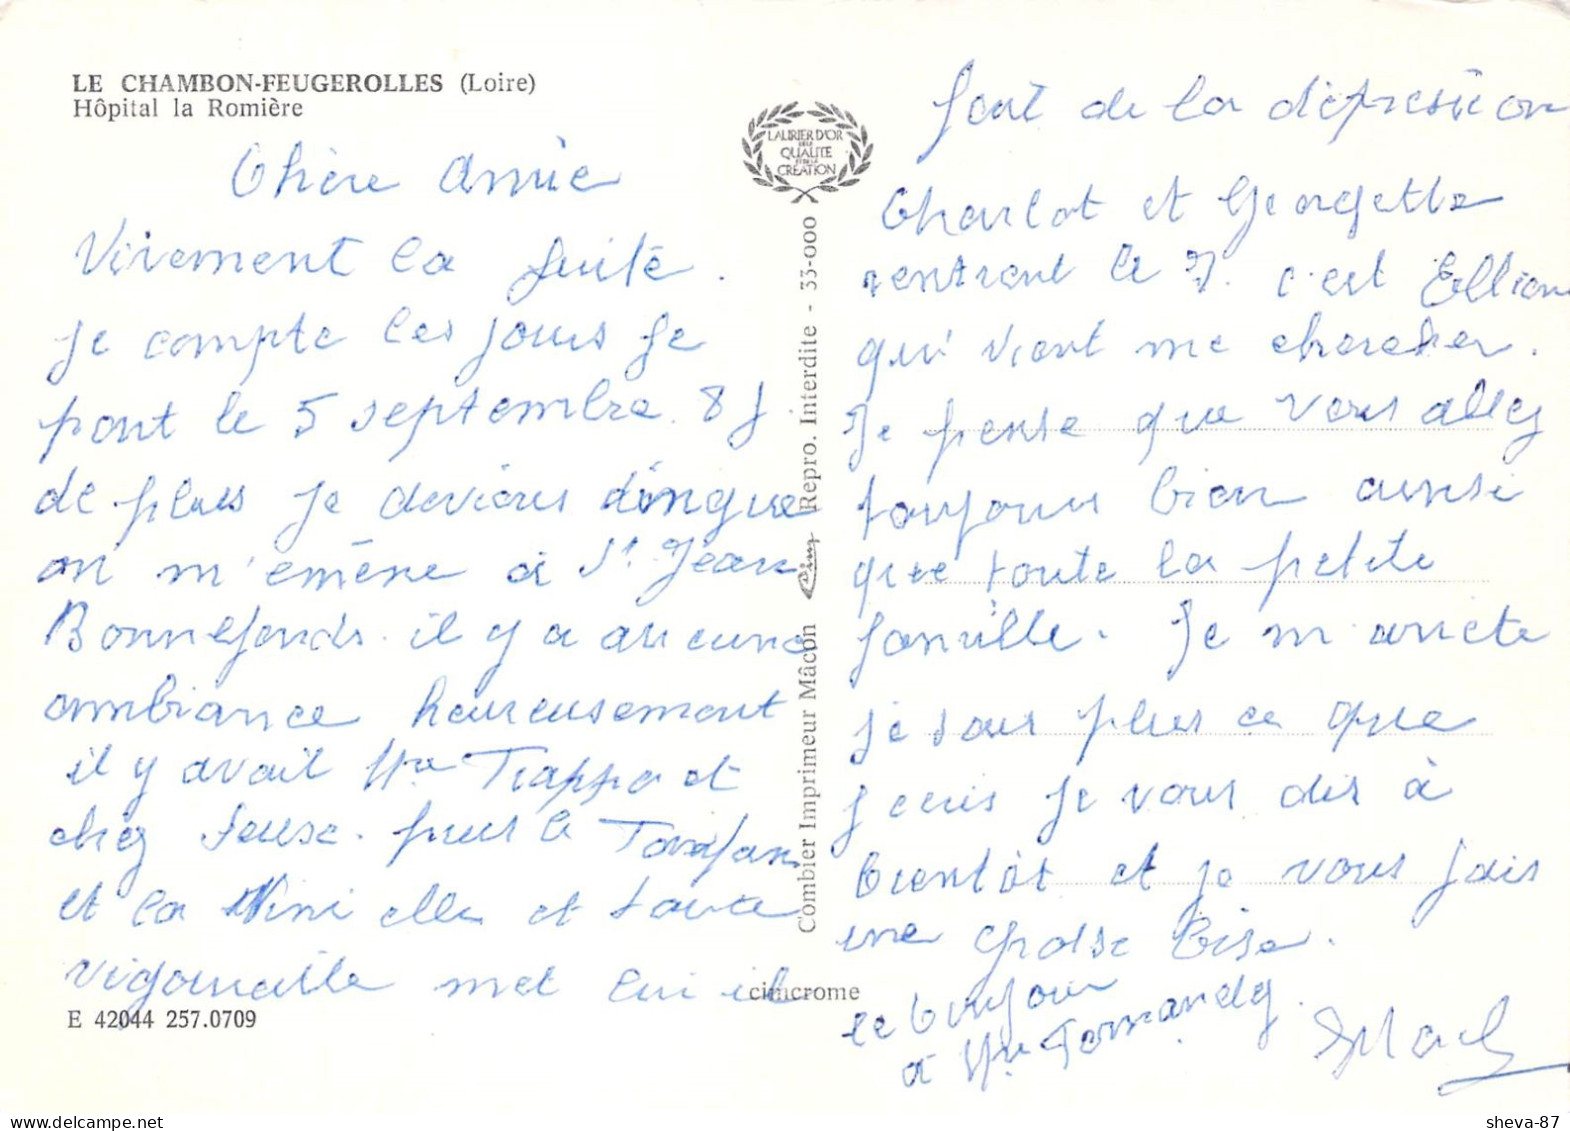 LE CHAMBON-FEUGEROLLES (Loire)
Hôpital la Romière
Chère Amie
Vivement la fuite.
Je compte les jours je
part le 5 septembre 85.
de plus je deviens dingue
on m'emène à St Jean
Bonnefonds. il y a aucune
ambiance heureusement
il y avait Mme Trappo et
chez puis le
et la Nini elle et toute
met lui il
E 42044 257.0709
LAURIER D'OR
DE LA
QUALITE
ET DE LA
CREATION
Combier Imprimeur Mâcon Cim Repro. Interdite - 33-000
cimcrome
fait de la dépression
Charlot et Georgette
rentrent le 7. c'est Elliane
qui vient me chercher.
Je pense que vous allez
toujours bien ainsi
que toute la petite
famille. Je m'arrete
je sais plus ce que
j'ecris je vous dis à
bientôt et je vous fais
une grosse bise.
le bonjour
à Mme Fernandez.
sheva-87